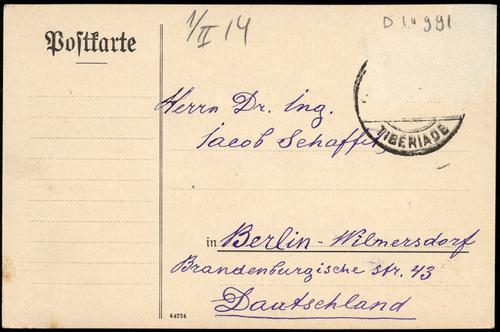 Postkarte
1/II 14
TIBERIADE
Herrn Dr. Ing.
Jacob Schaffit
in Berlin - Wilmersdorf
Brandenburgische str. 43
Dautschland
44724